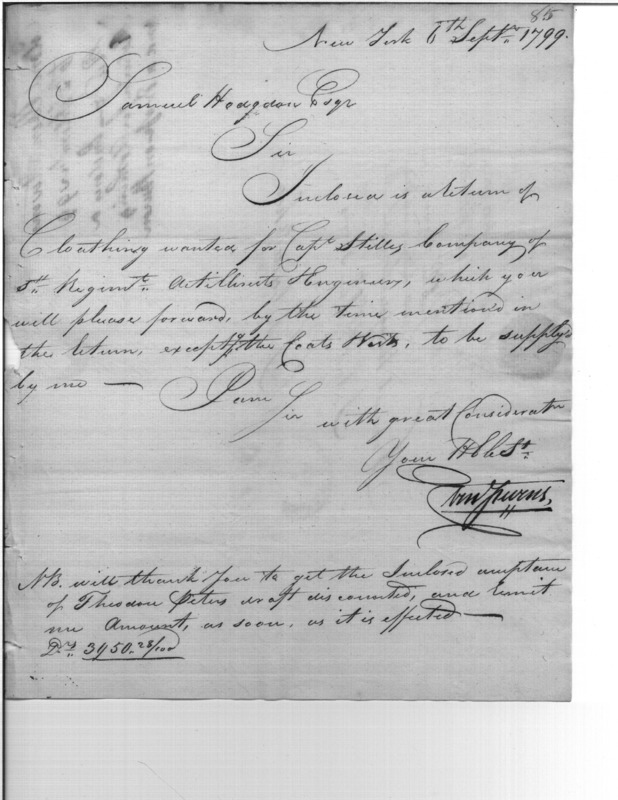 85
New York 6th Septr 1799.
Samuel Hodgdon Esqr
Sir
Inclosed is a Return of
Cloathing wanted for Capt Stilles Company of
Regimt Artillirists & Engineers, which you
will please forward, by the time mention'd in
the return, exceptg the Coats & Vests, to be supply'd
by me —
I am
Sir
with great Consideratn
Your Hble St
NB. will thank You to get the Inclosed acceptance
of Theodore Peters draft discounted, and remit
me Amount, as soon, as it is effected —
3950.28/100